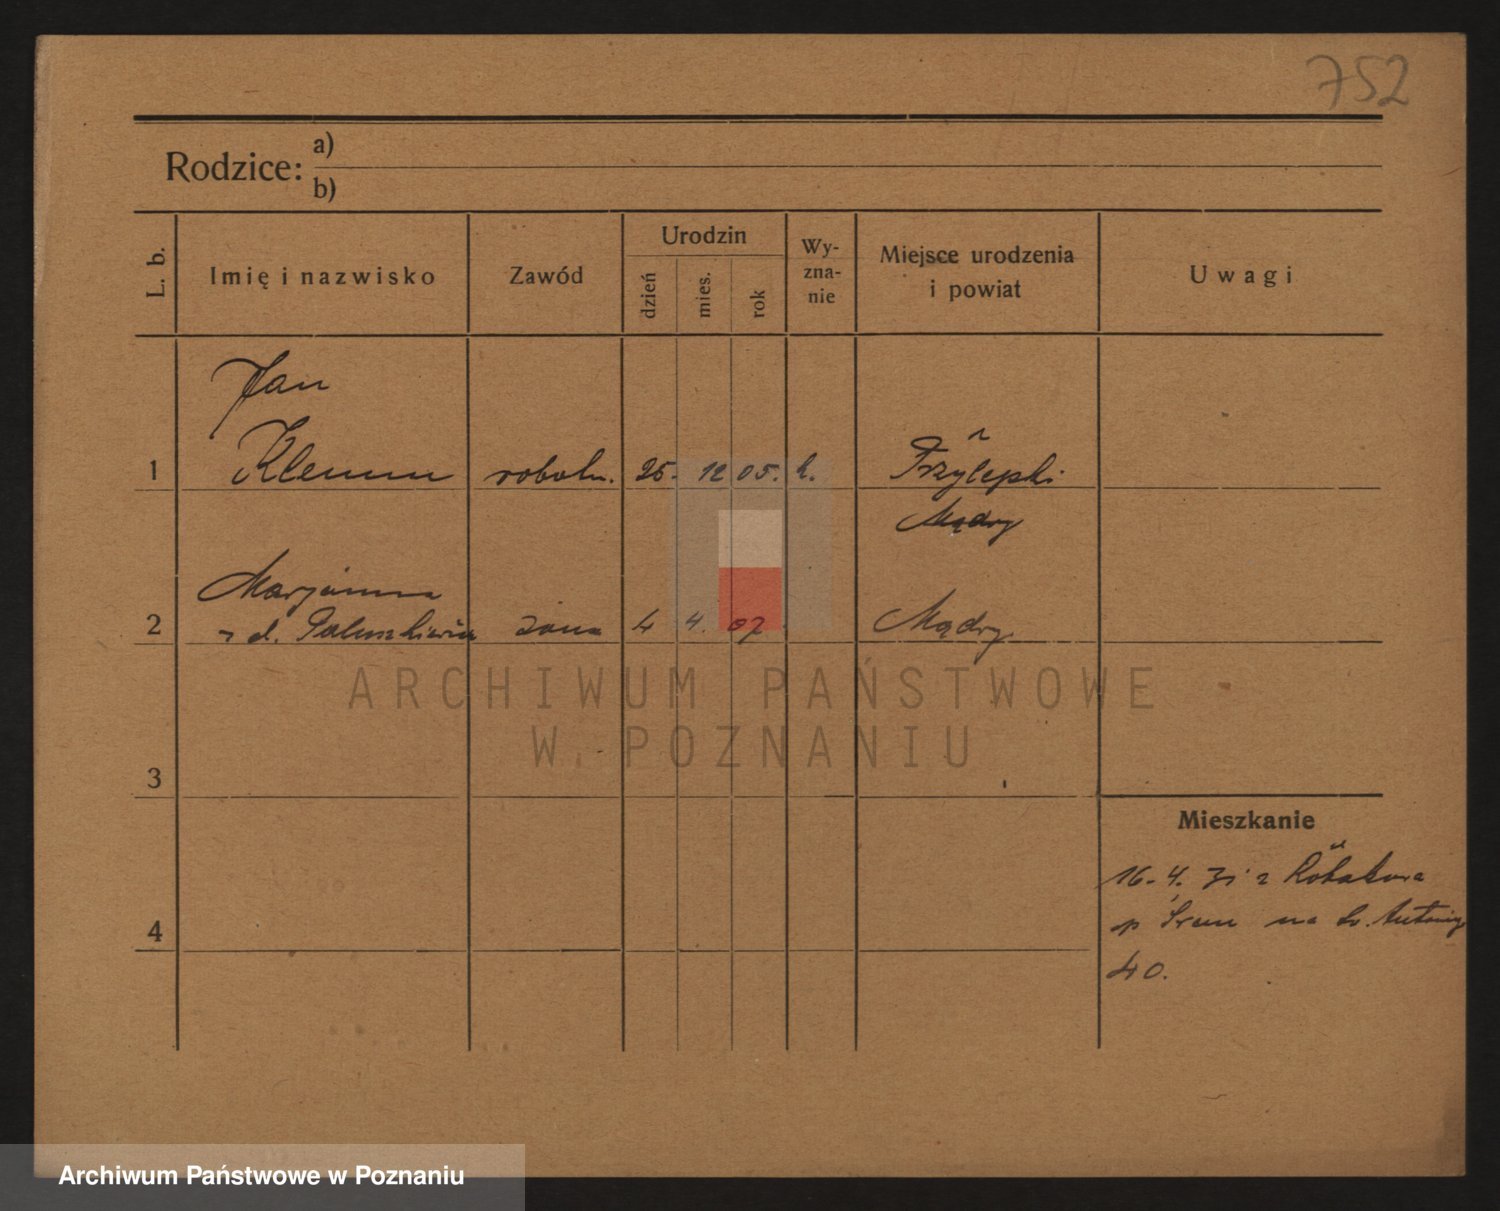 752
Rodzice: a)
b)
L. b. Imię i nazwisko Zawód Urodzin dzień mies. rok Wy-zna-nie Miejsce urodzenia i powiat Uwagi
Jan
1 Klemm robotn. 25. 12 05. k. Przylepki
Mądry
Marjanna
2 z d. żona 4 4. 07 Mądry
ARCHIWUM PAŃSTWOWE
W POZNANIU
3
Mieszkanie
16. 4. 31 z
4 p Śrem na św. Antoniego
40.
Archiwum Państwowe w Poznaniu